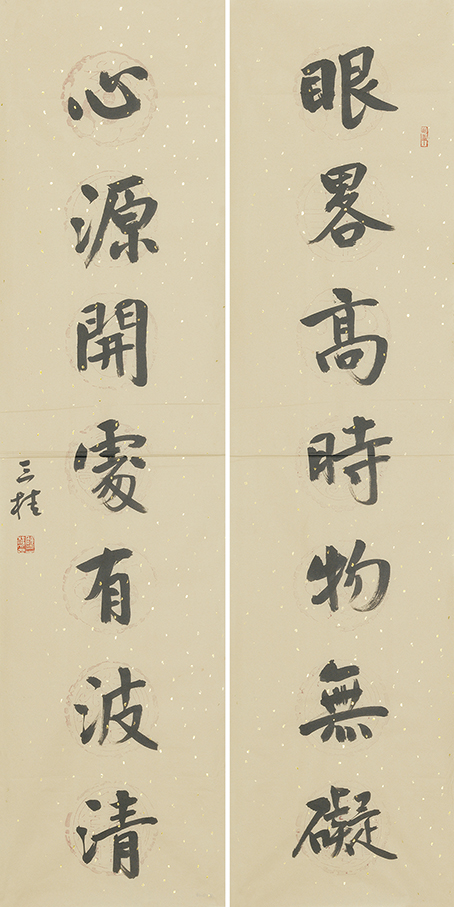 眼畧高時物無礙
心源開處有波清
三桂